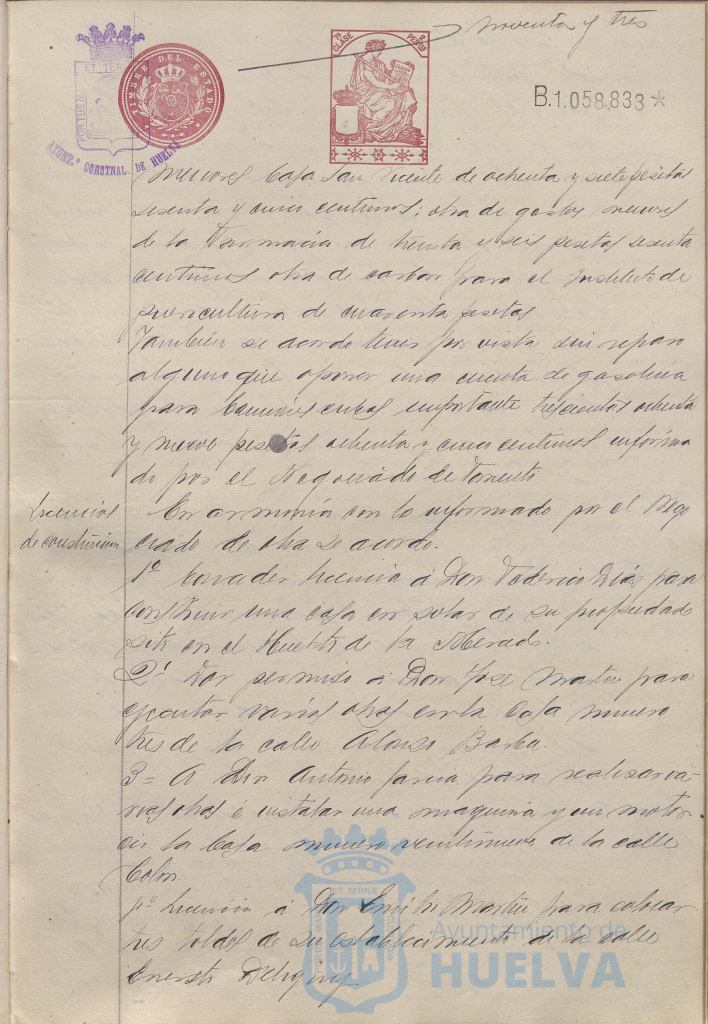 noventa y tres
ET TERRÆ
PORTUS M
AYUNT.º CONSTNAL. DE HUELVA
TIMBRE DEL ESTADO
7ª CLASE
2 PESETAS
B.1.058.833 *
menores Casa San Vicente de ochenta y siete pesetas
sesenta y cinco centimos; otra de gastos menores
de la Farmacia de treinta y seis pesetas sesenta
centimos otra de carbon para el Instituto de
puericultura de cuarenta pesetas.
También se acordo tener por vista sin reparo
alguno que oponer una cuenta de gasolina
para Camiones cubas importante trescientas ochenta
y nueve pesetas ochenta y cinco centimos informa
do por el Negociado de Fomento
Licencias
de construccion
En armonia con lo informado por el Nego
ciado de obra se acordo.
1º Conceder licencia á Don Federico Diaz para
construir una casa en solar de su propiedad
sito en el Huerto de la Merced.
2º Dar permiso á Don Jose Martin para
ejecutar varias obras en la Casa numero
tres de la calle Alonso Barba.
3º A Don Antonio Garcia para realizar va-
rias obras é instalar una maquina y un motor
en la Casa numero veintinueve de la calle
Colon.
4º Licencia á Don Emilio Martin para colocar
tres toldos de su establecimiento de la calle
Ernesto Deligny
ET TERRÆ
Ayuntamiento de
HUELVA